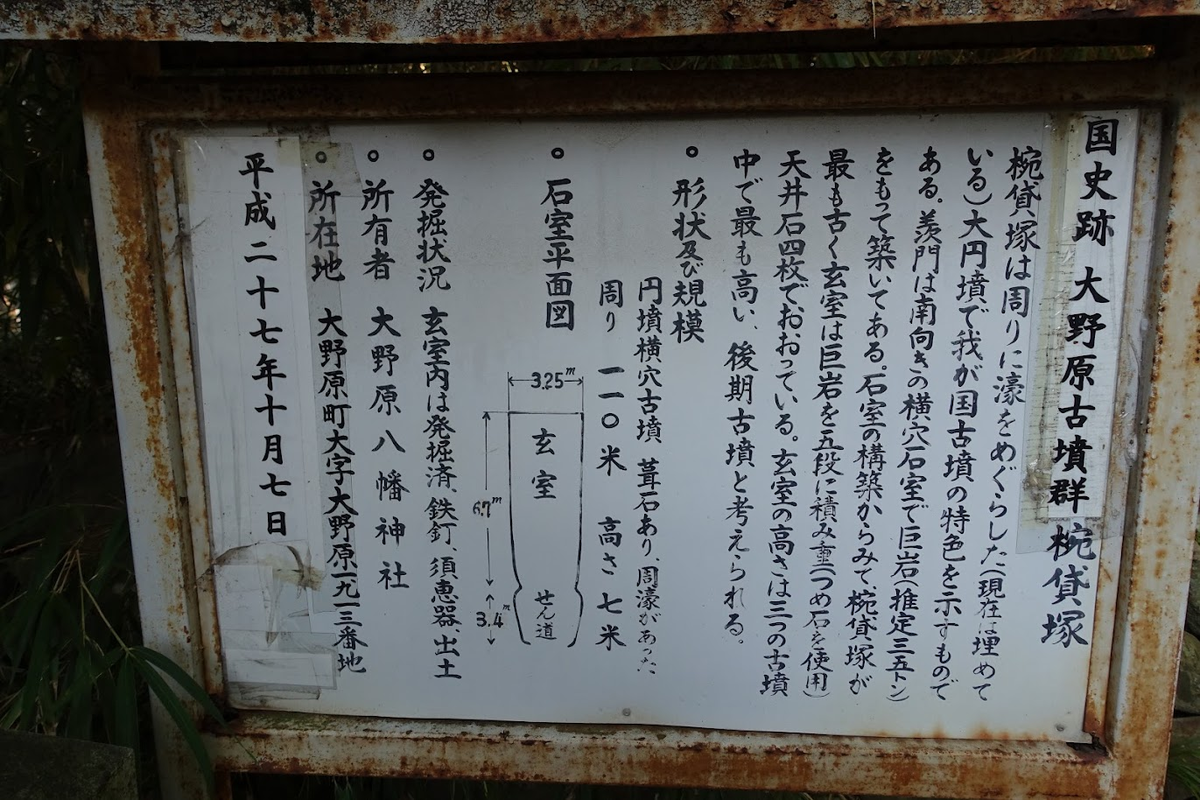 国史跡 大野原古墳群 椀貸塚
椀貸塚は周りに濠をめぐらした(現在は埋めて
いる)大円墳で我が国古墳の特色を示すもので
ある。羨門は南向きの横穴石室で巨岩(推定三五トン)
をもって築いてある。石室の構築からみて、椀貸塚が
最も古く玄室は巨岩を五段に積み重(つめ石を使用)
天井石四枚でおおっている。玄室の高さは三つの古墳
中で最も高い、後期古墳と考えられる。
○ 形状及び規模
円墳横穴古墳 葺石あり、周濠があった
周り 一一〇米 高さ 七米
○ 石室平面図
3.25m
玄室
6.7m
せん道
3.4m
○ 発掘状況 玄室内は発掘済、鉄釘、須恵器、出土
○ 所有者 大野原八幡神社
○ 所在地 大野原町大字大野原一九一三番地
平成二十七年十月七日